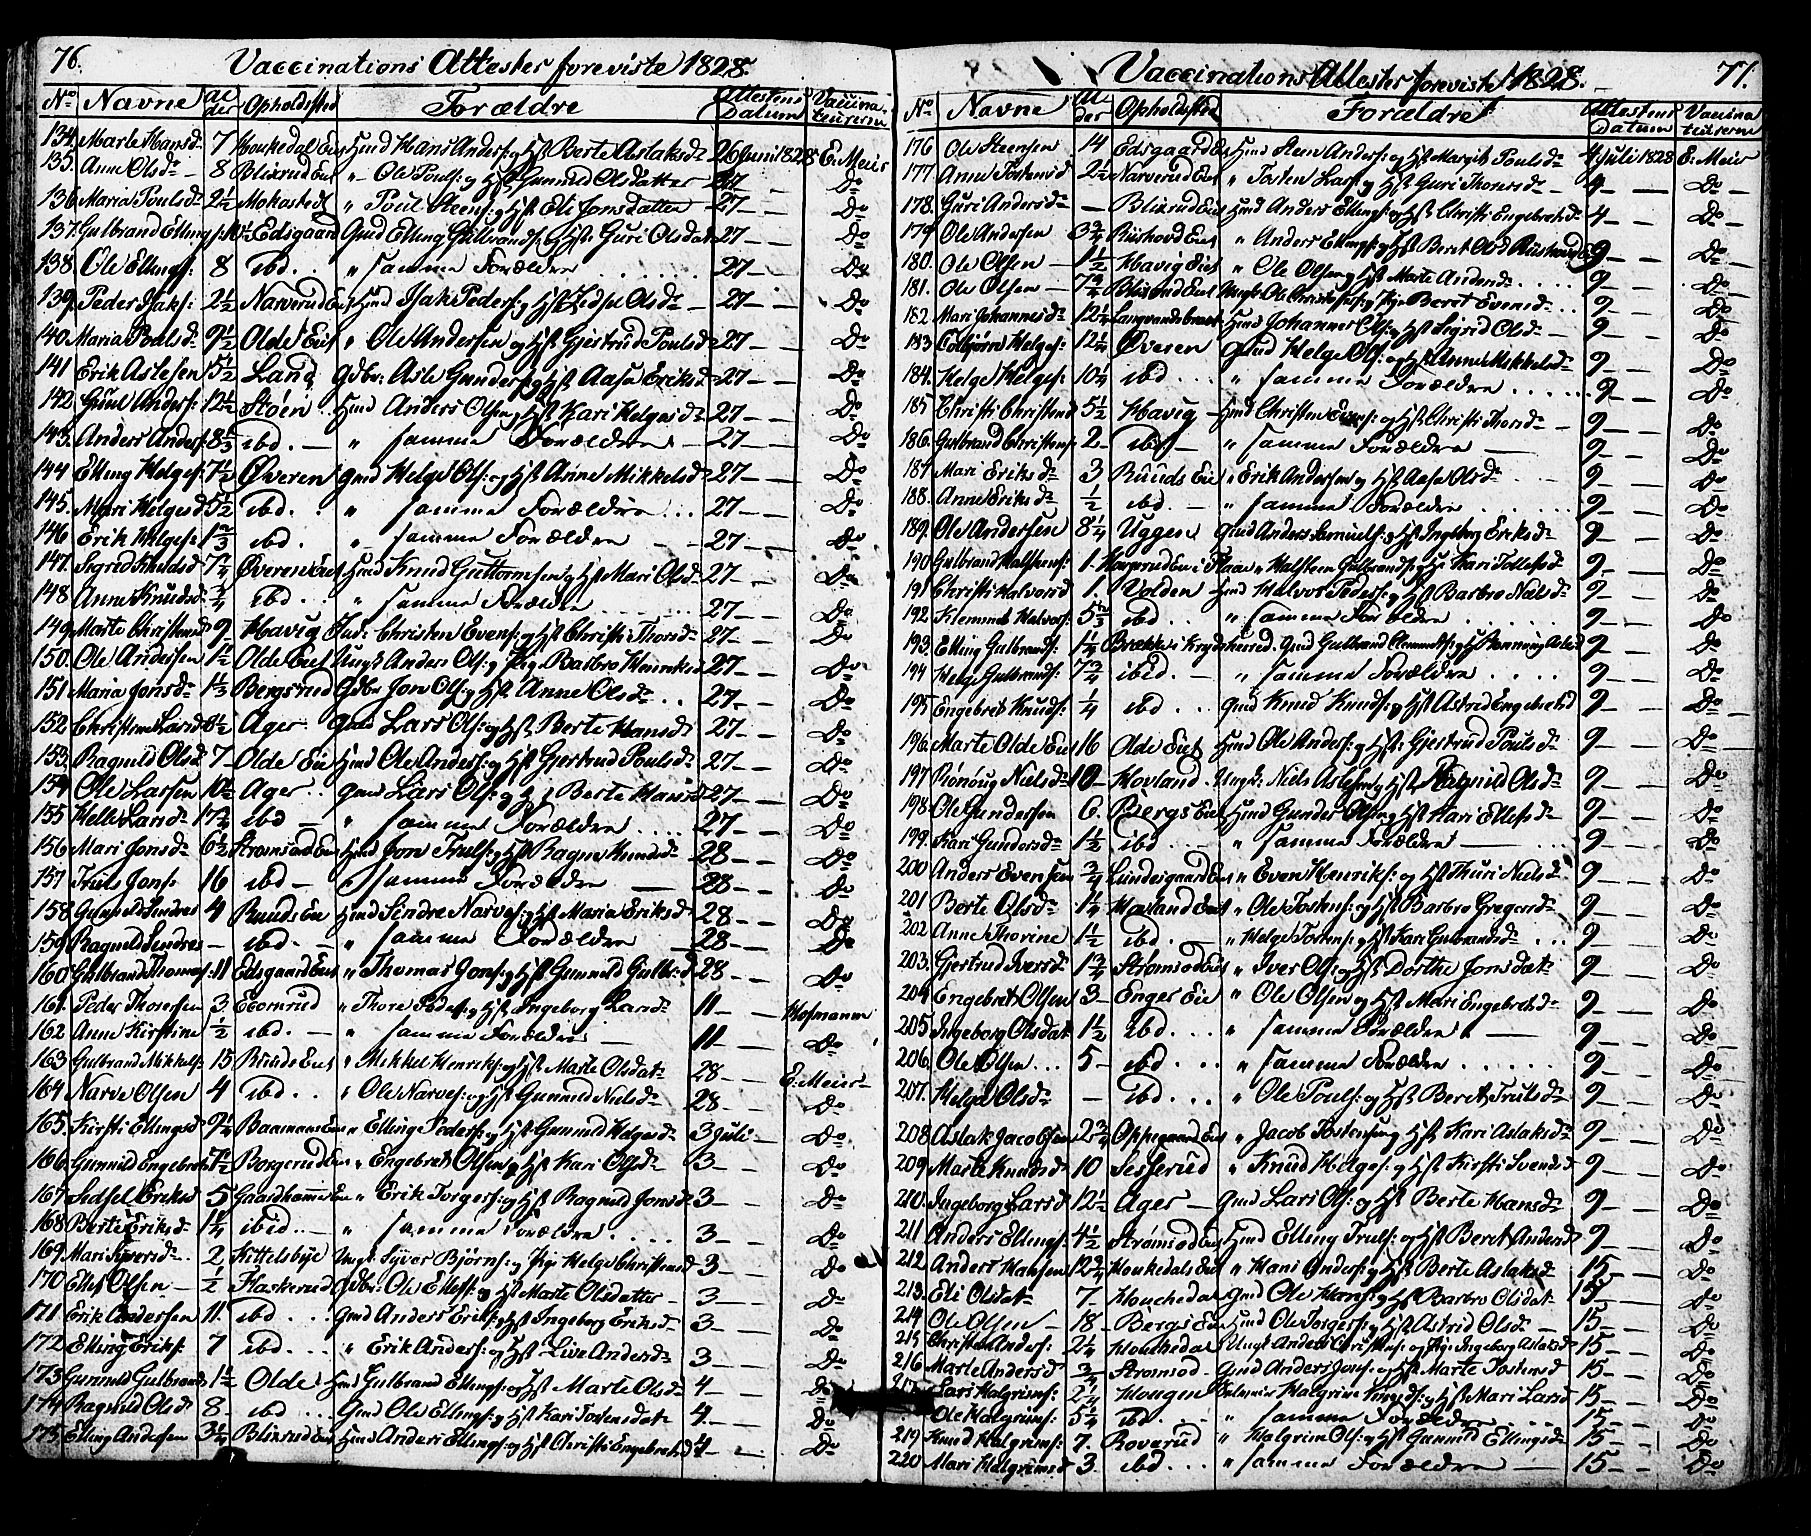 76.
Vaccinations Attester foreviste 1828.
No Navne Alder Opholdssted Forældre Attestens Datum Vaccinateurerne
134. Marte Hansd: 7 Houkedal Eiet Hmd Hans Anders: og Hst Berte Aslaksd: 26 Juni 1828 E. Meier
135. Anne Olsd: – 8 Blixrud Eiet " Ole Pouls: og Hst Gunnild Olsdatter 27 – Do
136. Maria Poulsd: 2½ Mokasted " Poul Steens: og Hst Eli Jonsdatter 27 – Do
137. Gulbrand Elling Edsgaard Gmd Elling Gulbrands: og Hst Guri Olsdat: 27 – Do
138. Ole Ellings: 8 ibd. " samme Forældre 27 – Do
139. Peder Isaks: 2½ Narverud Eiet Hmd Isak Peders: og Hst Sidsel Olsd: 27 – Do
140. Maria Poulsd: 9½ Olde Eiet " Ole Andersen og Hst Gjertrud Poulsd: 27 – Do
141 Erik Aslesen 5½ Land Gdbr: Asle Gunders: og Hst Aase Eriksd: 27 – Do
142. Anders: 12½ Støen Hmd Anders Olsen og Hst Kari Helgesd: 27 – Do
143. Anders Anders: 8½ ibd. – " samme Forældre 27 Do
144 Elling Helges: 7½ Øveren Gmd Helge Ols: og Hst Anne Mikkelsd: 27 – Do
145. Mari Helgesd: 5½ ibd. " samme Forældre 27 – Do
146 Erik Helges: 1⅔ ibd. " samme Forældre 27 – Do
147. Sigrid Knudsd: 7¼ Øveren Eiet Hmd Knud Guttormsen og Hst Mari Olsd: 27 – Do
148 Anne Knudsd: ¾ ibd. " samme Forældre 27 – Do
149. Marte Christensd: 9 Havig Christen Evens: og Hst Christi Thorsd: 27 – Do
150. Ole Andersen 1½ Olde Eiet Ungk: Anders Ols: og Pige Barbro Henriksd: 27 – Do
151 Maria Jonsd: 1⅓ Bergsrud Gdbr Jon Ols: og Hst Anne Olsd: 27 – Do
152 Christine Larsd: 6½ Ager Gmd Lars Ols: og Hst Berte Hansd: 27 – Do
153. Ragnild Olsd: 7 – Olde Eie Hmd Ole Anders: og Hst Gjertrud Poulsd: 27 – Do
154 Ole Larsen 10½ Ager Gmd Lars Ols: og Berte Hansd: 27 – Do
155 Helle Larsd: ibd – " samme Forældre 27 – Do
156 Mari Jonsd: 6½ Strømsod Eiet Hmd Jon Truls: og Hst Ragne Knudsd: 28 – Do
157 Truls Jons: 16 ibd – " samme Forældre 28 – Do
158 Gunnild Sendres 4 Ruuds Eie Hmd Sendre Narves: og Hst Maria Eriksd: 28 – Do
159. Ragnild Sendres – ibd. – " samme Forældre 28 – Do
160 Gulbrand Thomas: 11 Edsgaard Eiet " Thomas Jons: og Hst Gunnild Gulbr:d 28 – Do
161. Peder Thoresen 3. Ecornrud " Thore Peders: og Hst Ingeborg Larsd: 11 – Hofmann
162 Anne Kirstine ½ ibd. – " samme Forældre 11 – Do
163 Gulbrand Mikkels: 15 Ruuds Eiet " Mikkel Henriks: og Hst Marte Olsdat: 28 – E. Meier
164 Narve Olsen 4 ibd. " Ole Narves: og Hst Gunnild Nielsd: 28 – Do
165. Kirsti Ellingsd: 9¼ Baamans Eie " Elling Peders: og Hst Gunnild Helgesd: 3 Juli – Do
166. Gunnild Engebretsd: 7½ Borgerud Eie " Engebret Olsen og Hst Kari Olsd: 3 – Do
167 Sidsel Eriksd 5 Gaardhammer Eie " Erik Torgers: og Hst Ragnild Jonsd: 3 – Do
168 Berte Eriksd: 1¼ ibid. " samme Forældre 3 – Do
169. Mari Syversd: 2 Kittelsbye Ungk: Syver Bjørns: og Pige Helge Christensd: 3 – Do
170 Ellef Olsen – ½ Flaskerud Gdbr: Ole Ellefs: og Hst Marte Olsdatter 3 – Do
171 Erik Andersen 11. ibd. Gmd Anders Eriks: og Hst Ingeborg Eriksd: 3 – Do
172 Elling Eriks: 7 ibd. " Erik Anders: og Hst Live Andersd: 3 – Do
173 Gunnild Gulbrand 1½ Olde Hmd Gulbrand Ellings: og Hst Marte Olsd: 4 – Do
174 Ragnild Olsd: 8 – ibd Gmd Ole Ellings: og Hst Kari Tostensdat: 4. Do
175. Elling Andersen 3¼ Blixrud Eiet Hmd Anders Ellings: og Hst Christi Engebretsd: 4 – Do
77.
Vaccinations Attester foreviste 1828.
No Navne Alder Opholdssted Forældre Attestens Datum Vaccinateurerne
176 Ole Steensen 14 Edsgaard Eiet Hmd Steen Anders: og Hst Margit Poulsd: 4 Juli 1828 E. Meier
177 Anne Tostensd 2½ Narverud Eiet " Tosten Lars: og Hst Guri Thoresd: 4 – Do
178. Guri Andersd: – Blixrud Eiet Hmd Anders Ellings: og Hst Christi Engebretsd: 4 – Do
179 Ole Andersen 3¾ Riishovd Eiet " Anders Ellings: og Hst Beret Olsd Riishovd Eie 9 – Do
180. Ole Olsen – 1½ Havig Eiet " Ole Olsen og Hst Marte Andersd: 9 – Do
181. Ole Olsen – 7¾ Blixrud Eiet Ungk: Ole Christophers: og Pige Beret Evensd: 9 – Do
182 Mari Johannesd: 12¼ Langvandsbraaten Hmd Johannes Ols: og Hst Sigrid Olsd: 9 – Do
183 Colbjørn Helges: 12¼ Øveren Gmd Helge Ols: og Hst Anne Mikkelsd: 9 – Do
184. Helge Helges: 10¼ ibd " samme Forældre 9 – Do
185 Christi Christensd 5½ Havig – Hmd Christen Evens: og Hst Christi Thorsd: – 9 – Do
186. Gulbrand Christens: 2 – ibd – " samme Forældre 9 – Do
187 Mari Eriksd: 3 Ruuds Eie " Erik Andersen og Hst Aase Olsd: 9 – Do
188. Anne Eriksd: ½ ibd. – " samme Forældre 9 – Do
189. Ole Andersen 8¼ Uggen Gmd Anders Samuels: og Hst Ingeborg Eriksd: 9 – Do
190 Gulbrand Halstens: 1 – Hargerud Eie i Flaae " Halsten Gulbrands: og Hst Kari Tollefsd: 9 – Do
191 Christi Halvorsd 1. Volden Hmd Halvor Peders: og Hst Barbro Nielsd: 9 – Do
192. Klemmet Halvors: 5⅔ ibd. " samme Forældre 9 – Do
193. Elling Gulbrands: 1¼ Brække i Krydsherred. Gmd Gulbrand Clemmets: og Hst 9 – Do
194 Helge Gulbrands: 7¾ ibid. – " samme Forældre 9 – Do
195 Engebret Knuds: ¼ ibd Gmd Knud Knuds: og Hst Astrid Engebretsd 9 – Do
196. Marte Olde Eiet 16 Olde Eiet Hmd Ole Anders: og Hst: Gjertrud Poulsd: 9 – Do
197 Rønnoug Nielsd: 10 – Hovland. Ungk: Niels Aslesen og Hst Ragnild Olsd: 9 – Do
198 Ole Gundersen 6. Bergs Eiet Hmd Gunder Olsen og Hst Kari Ellefsd: 9 – Do
199. Kari Gundersd: 1½ ibd. " samme Forældre 9 – Do
200 Anders Evensen ¾ Lundesgaard Eie " Even Henriks: og Hst Thuri Nielsd: 9 – Do
201 Berte Olsd: 1¼ Havland Eiet " Ole Tostens: og Hst Barbro Gregersd: 9 – Do
202 Anne Thorine 1½ ibd. – " Helge Tostens: og Hst Kari Gulbrandsd: 9 – Do
203. Gjertrud Iversd: 1¾ Strømsod Eiet " Iver Ols: og Hst Dorthe Jonsdat: 9 – Do
204 Engebret Olsen 3 – Enger Eie " Ole Olsen og Hst Mari Engebretsd: 9 – Do
205 Ingeborg Olsdat: 1½ ibd. " samme Forældre 9 – Do
206. Ole Olsen 5 – ibd. " samme Forældre 9 – Do
207. Helge Olsd: – ibd. " Ole Pouls: og Hst Beret Trulsd: 9 – Do
208 Aslak Jacobsen 2¾ Oppegaard Eiet " Jacob Tostensen og Hst Kari Aslaksd: 9 – Do
209. Marte Knudsd: 10 Sesserud " Knud Helges: og Hst Kirsti Svendsd: 9 – Do
210. Ingeborg Larsd 12½ Ager – Gmd Lars Ols: og Hst Berte Hansd: 9 – Do
211 Anders Ellings: 4½ Strømsod Eiet Hmd Elling Truls: og Hst Beret Andersd 9 – Do
212. Anders Hansen 12¾ Houkedals Eiet " Hans Anders: og Hst Berte Aslaksd: 15 – Do
213. Eli Olsdat: 7 – Houchedal Gmd Ole Hans: og Hst Barbro Olsdat: 15 – Do
214 Ole Olsen – 18 – Bergs Eie Hmd Ole Torgers: og Hst Astrid Olsd: 15 – Do
215 Christen Anders: 2¼ Houchedal Ungk: Anders Christens: og Pige Ingeborg Aslaksd: 15 – Do
216 Marte Andersd ⅔ Strømsod – Gmd Anders Jons: og Hst Marte Tostensd 15 – Do
217 Lars Halgrims: 2¼ Hougen Halgrim Knuds: og Hst Mari Larsd 15 – Do
Ole Halgrims: 5¼ ibd. " samme Forældre 15 – Do
219 Knud Halgrims: 7. Roverud " Halgrim Ols: og Hst Gunnild Ellingsd: 15 – Do
220 Mari Halgrimsd 3. ibd. " samme Forældre 15 – Do